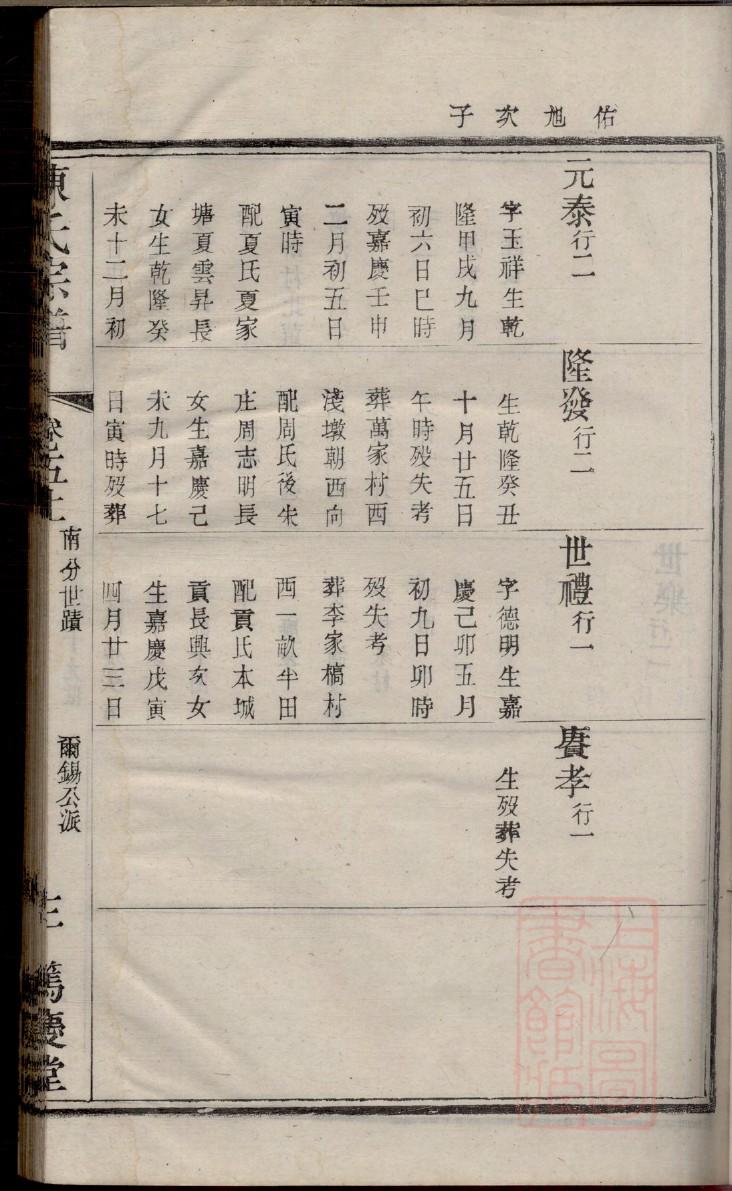 佑旭次子
元泰行二
字玉祥生乾
隆甲戌九月
初六日巳時
歿嘉慶壬申
二月初五日
寅時
配夏氏夏家
塘夏雲昇長
女生乾隆癸
未十二月初
隆發行二
生乾隆癸丑
十月廿五日
午時歿失考
葬萬家村西
淺墩朝西向
配周氏後朱
庄周志明長
女生嘉慶己
未九月十七
日寅時歿葬
世禮行一
字德明生嘉
慶己卯五月
初九日卯時
歿失考
葬李家槁村
西一畝半田
配貢氏本城
貢長興次女
生嘉慶戊寅
四月廿三日
賡孝行一
生歿葬失考
陳氏宗譜
卷之五十
南分世蹟
爾錫公派
篤慶堂
上海圖書館藏